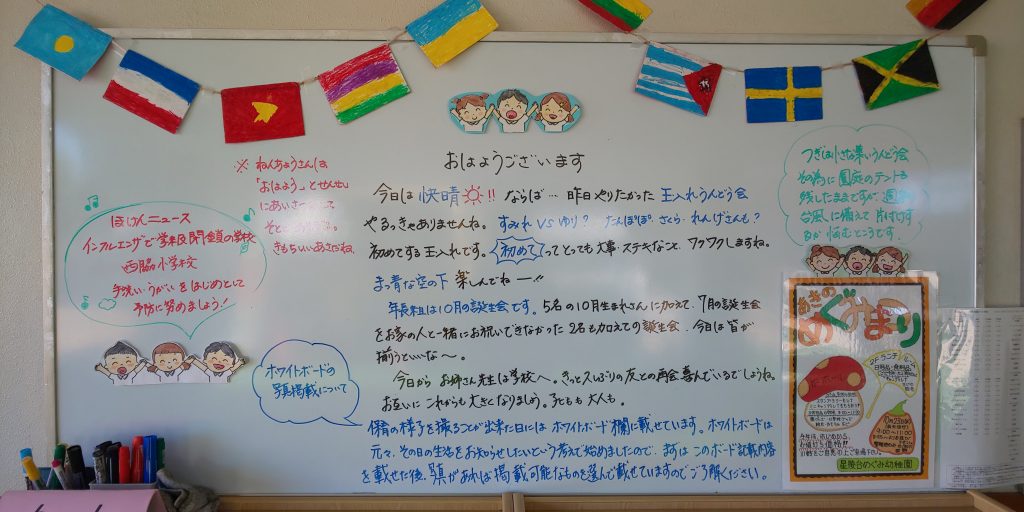 おはようございます
今日は快晴!! ならば… 昨日やりたかった 玉入れうんどう会
やるっきゃありませんね。すみれ VS ゆり? たんぽぽ・さくら・れんげさんも?
初めてする玉入れです。初めてってとっても大事・ステキなこと、ワクワクしますね。
まっ青な空の下 楽しんでねー!!
年長組は10月の誕生会です。5名の10月生まれさんに加えて、7月の誕生会
をお家の人と一緒にお祝いできなかった2名も加えての誕生会。今日は皆が
揃うといいな〜。
今日から お姉さん先生は学校へ。きっと久しぶりの友との再会喜んでいるでしょうね。
お互いに これからも大きくなりましょう。子どもも大人も。
ホワイトボードの
写真掲載について
保育の様子を撮ることが出来た日には ホワイトボード欄に載せています。ホワイトボードは
元々、その日の生活をお知らせしたいという考えで始めましたので、まずは このボード記載内容
を載せた後、写真があれば掲載可能なものを選んで載せていますのでご了解ください。
※ ねんちょうさんは
「おはよう」とせんせい
にあいさつ
きもちいいあさだね。
ほけんニュース
インフルエンザで学級閉鎖の学校
西脇小学校
手洗い・うがいをはじめとして
予防に努めましょう!
つぎは小さな集いうんどう会
その為に園庭のテントを
残したままですが、週末
台風に備えて片付けす
るか悩むところです。
あきの
めぐみまつり
10月23日
星陵台めぐみ幼稚園